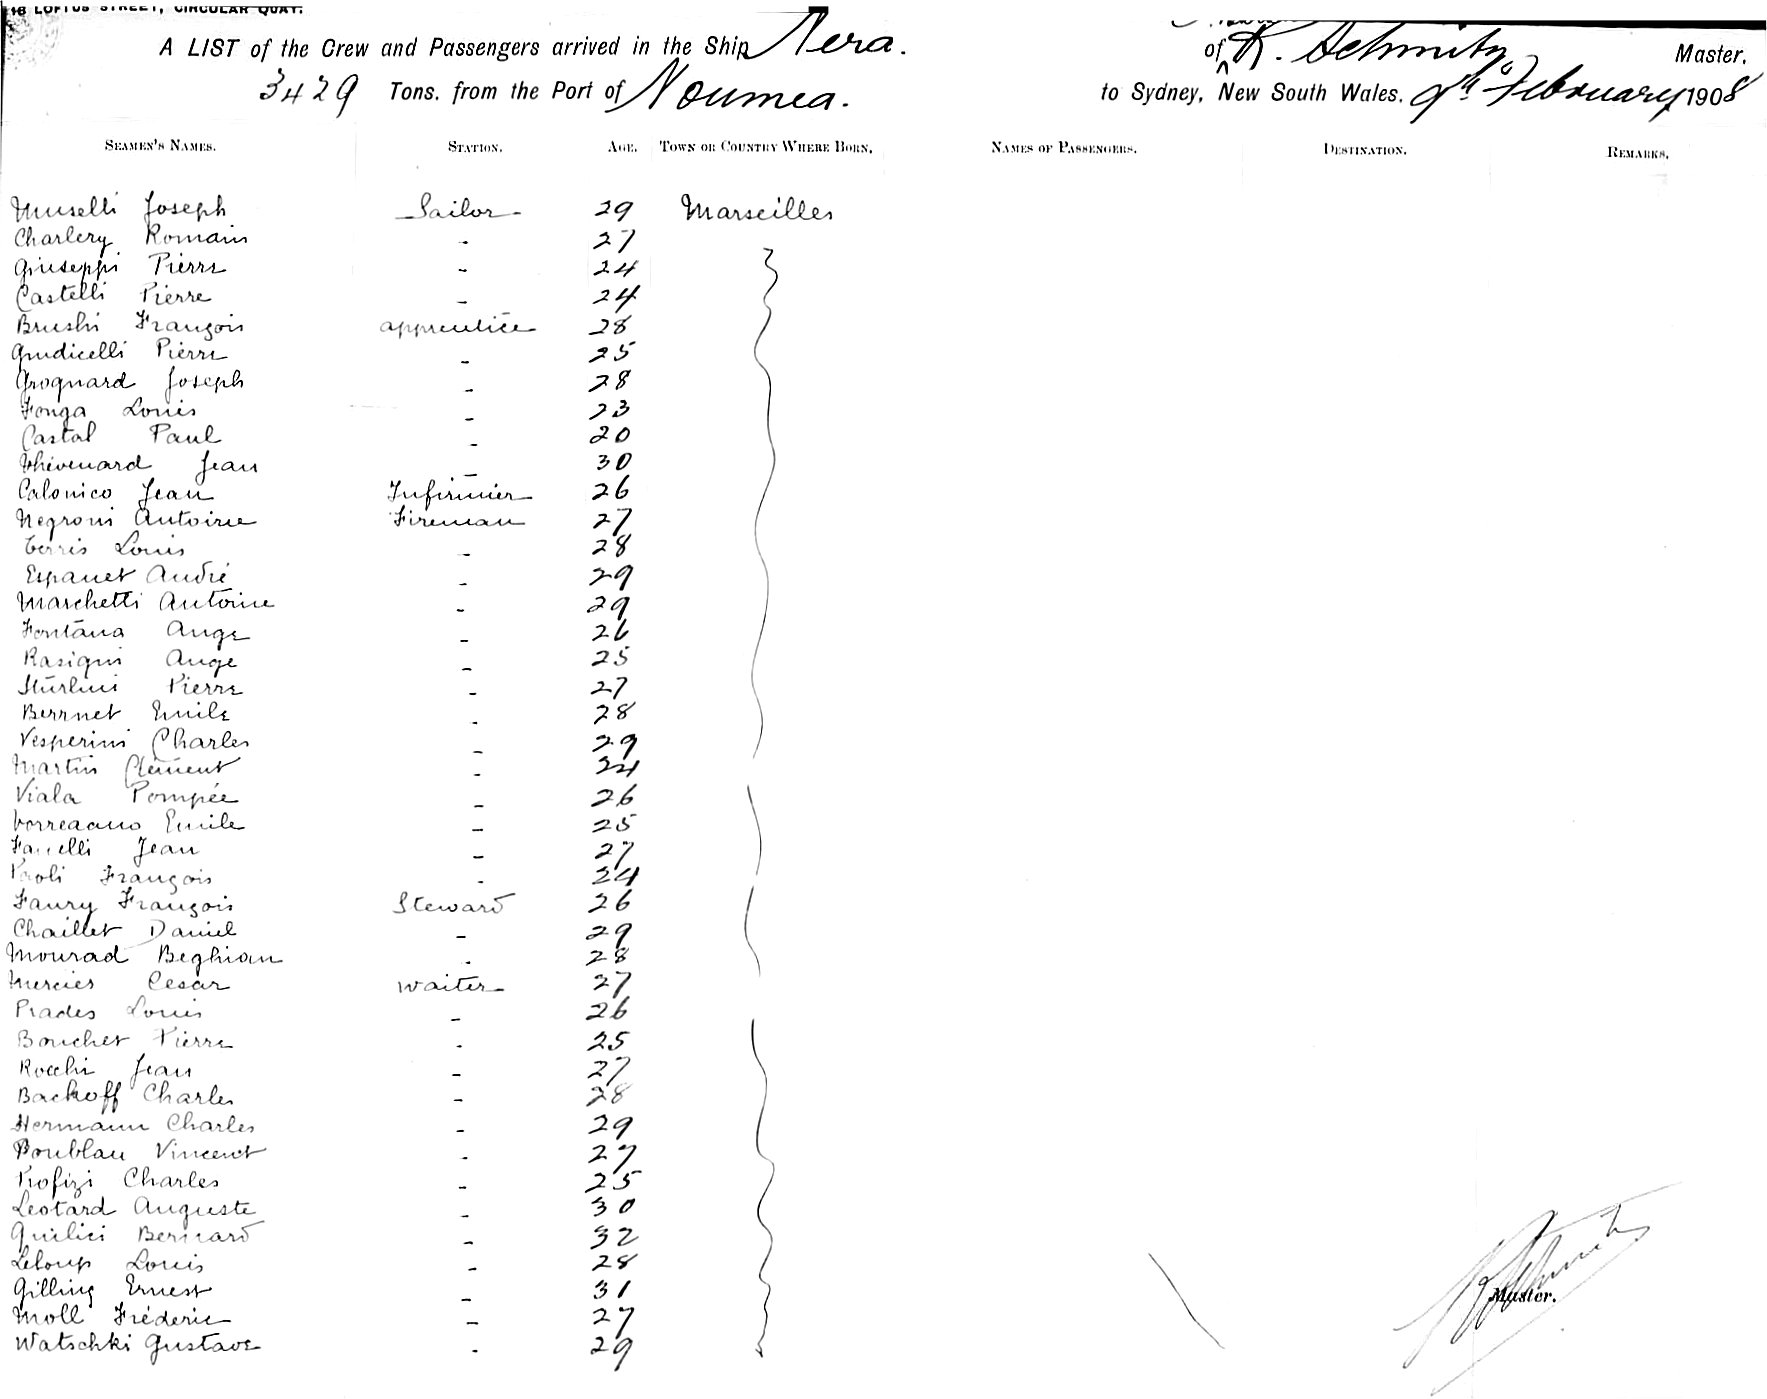 118 LOFTUS STREET, CIRCULAR QUAY.
A LIST of the Crew and Passengers arrived in the Ship Nera. of R. Schmitz, Master.
3429 Tons. from the Port of Noumea. to Sydney, New South Wales. 9th February 1908
SEAMEN'S NAMES. STATION. AGE. TOWN OR COUNTRY WHERE BORN. NAMES OF PASSENGERS. DESTINATION. REMARKS.
Muselli Joseph Sailor 29 Marseilles
Charlery Romain - 27
Giuseppi Pierre - 24
Castelli Pierre - 24
Brushi François apprentice 28
Giudicelli Pierre - 25
Grognard Joseph - 28
Fonga Louis - 23
Castal Paul - 20
Thévenard Jean - 30
Calonico Jean Infirmier 26
Negroni Antoine Fireman 27
Terris Louis - 28
Espanet André - 29
Marchetti Antoine - 29
Fontana Ange - 26
Rasigni Ange - 25
Sturlini Pierre - 27
Berrnet Emile - 28
Vesperini Charles - 29
Martin Clément - 24
Viala Pompée - 26
Emile - 25
Jean - 27
Paoli François - 24
Faury François Steward 26
Chaillet Daniel - 29
Mourad Beghian - 28
Mercier Cesar waiter 27
Prades Louis - 26
Bouchet Pierre - 25
Rocchi Jean - 27
Backoff Charles - 28
Hermann Charles - 29
Boublau Vincent - 27
Profizi Charles - 25
Leotard Auguste - 30
Quilici Bernard - 32
Leloup Louis - 28
Gilling Ernest - 31
Moll Fréderic - 27
Watschki Gustave - 29
R Schmitz
Master.